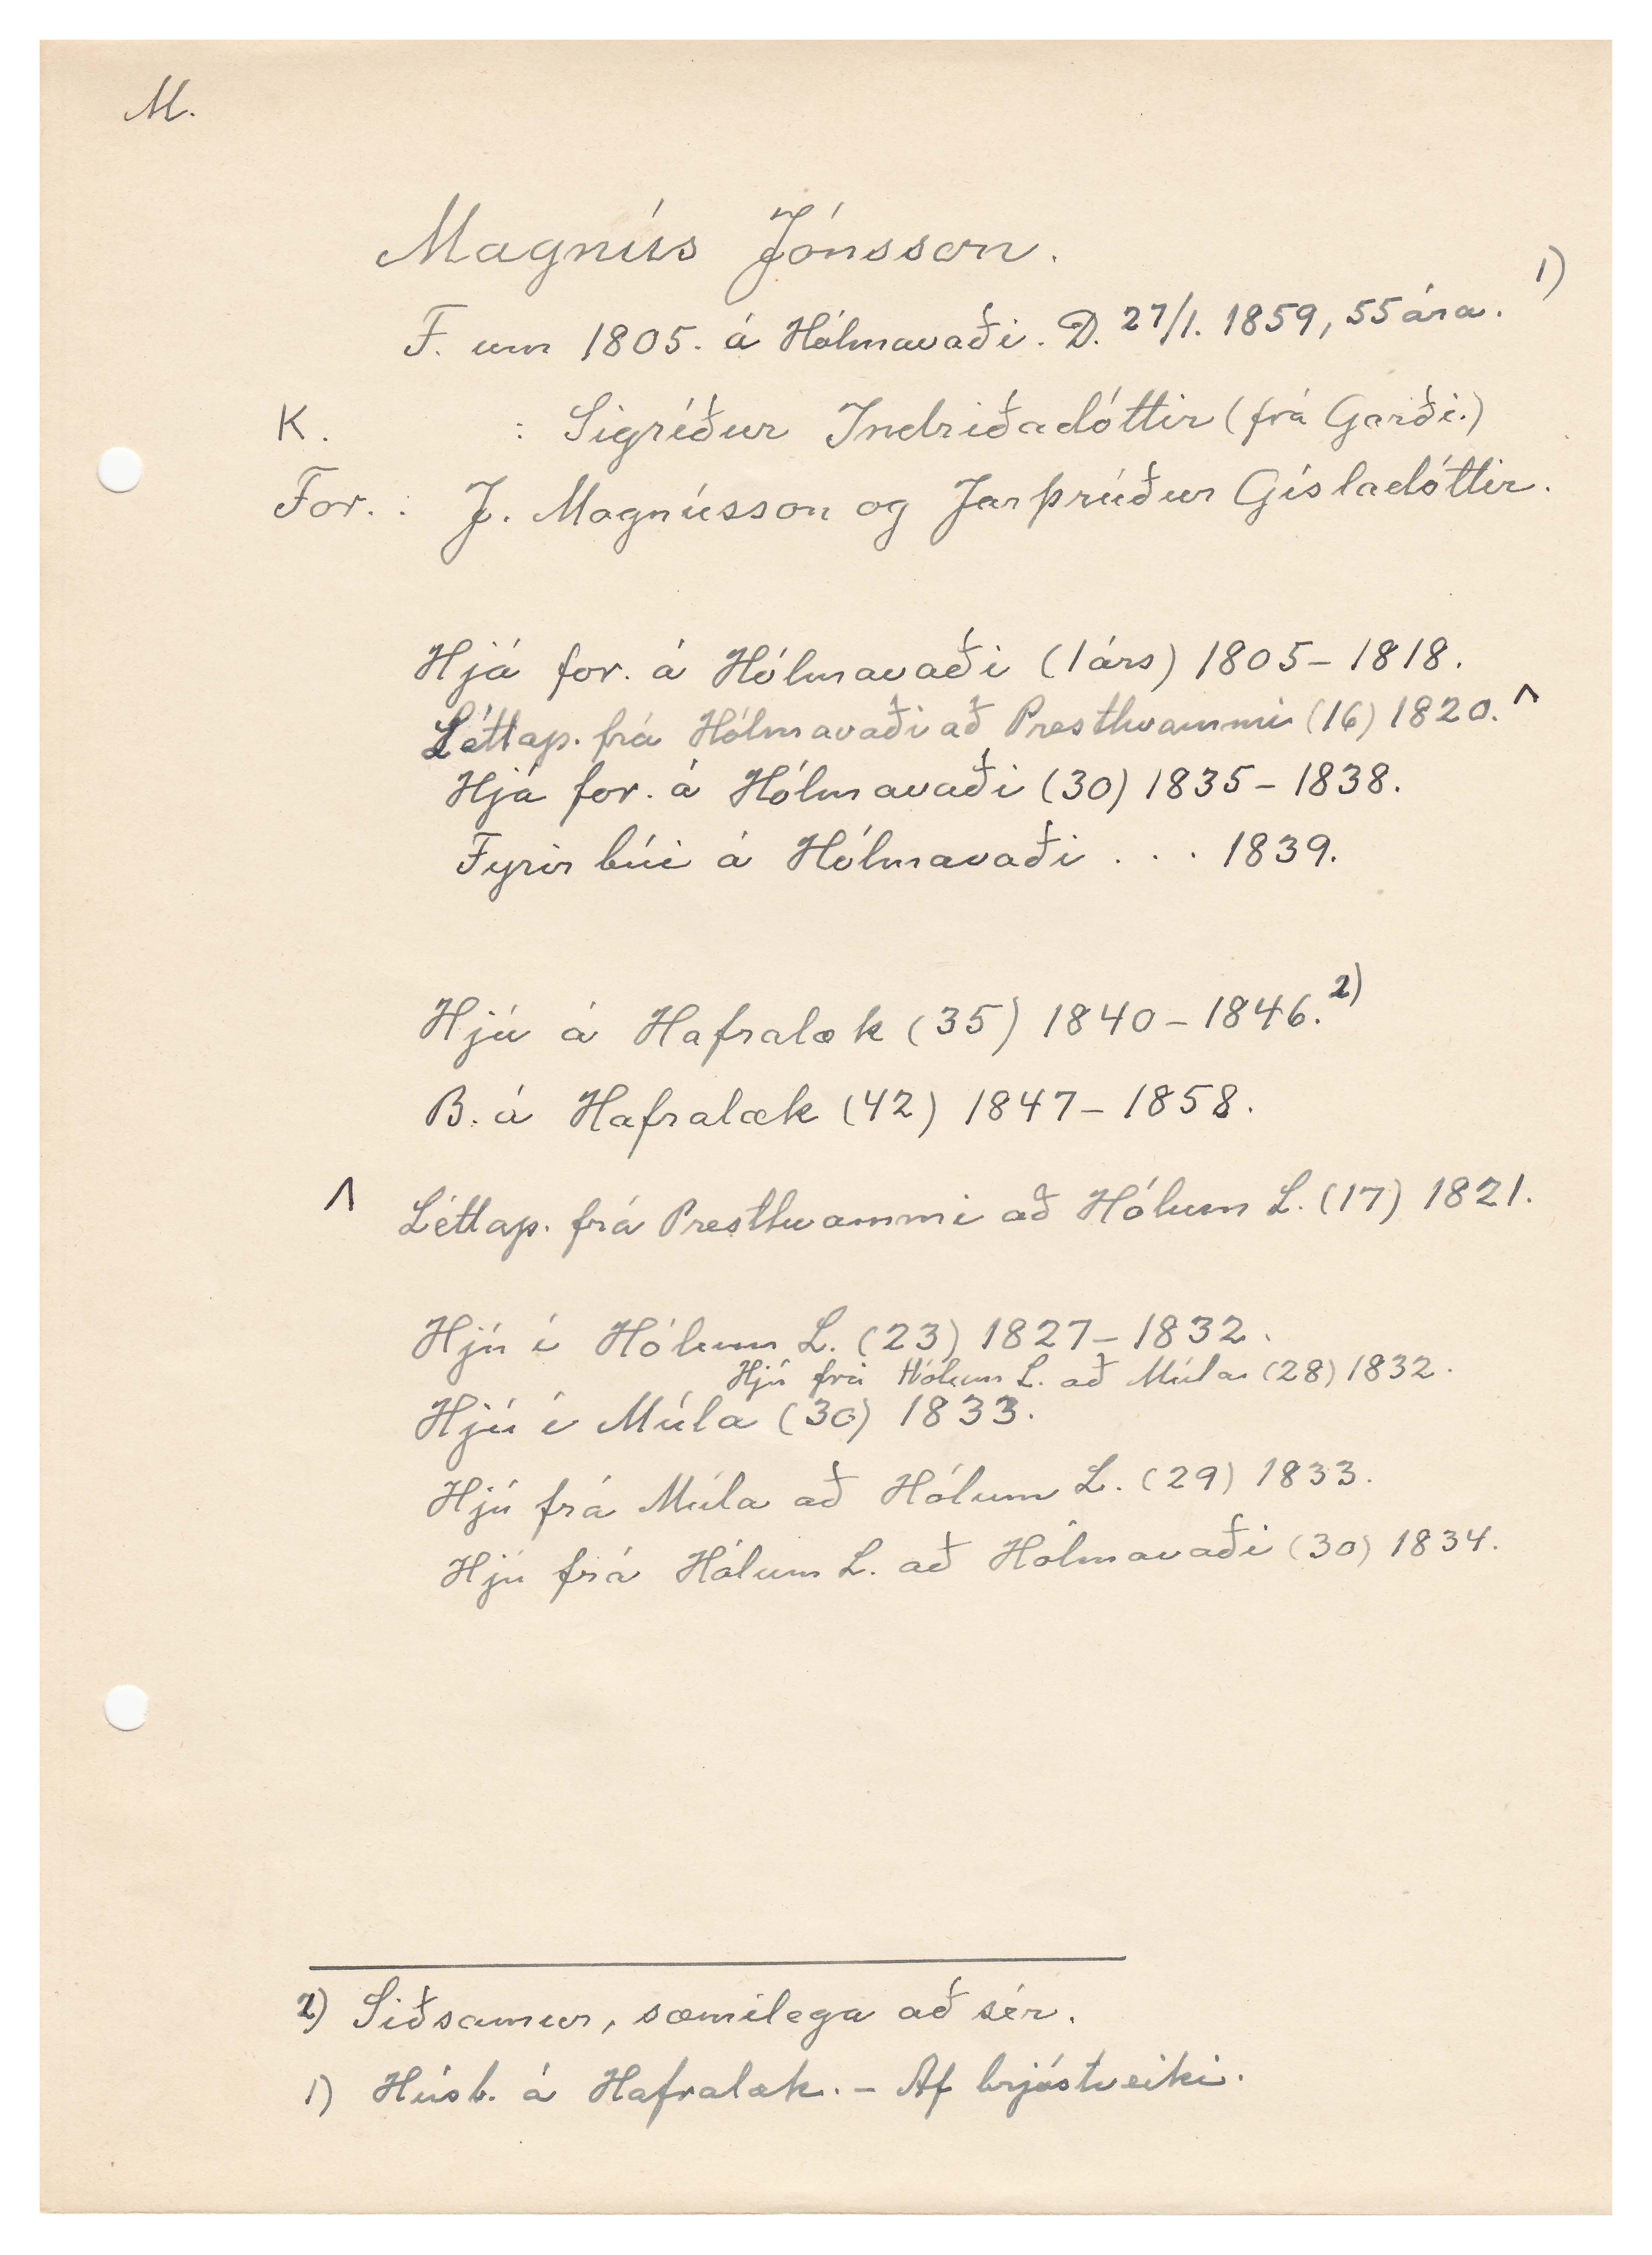 M.
Magnús Jónsson.
F. um 1805. á Hólmavaði. D. 27/1. 1859, 55 ára. 1)
K. : Sigríður Indriðadóttir (frá Garði.)
For. : J. Magnússon og Jarþrúður Gísladóttir.
Hjá for. á Hólmavaði (1árs) 1805-1818.
Léttap. frá Hólmavaði að Presthvammi (16) 1820. ^
Hjá for. á Hólmavaði (30) 1835-1838.
Fyrir búi á Hólmavaði . . . 1839.
Hjú á Hafralæk (35) 1840-1846. 2)
B. á Hafralæk (42) 1847-1858.
^ Léttap. frá Presthvammi að Hólum L. (17) 1821.
Hjú í Hólum L. (23) 1827-1832.
Hjú frá Hólum L. að Múla (28) 1832.
Hjú í Múla (30) 1833.
Hjú frá Múla að Hólum L. (29) 1833.
Hjú frá Hólum L. að Hólmavaði (30) 1834.
2) Siðsamur, sæmilega að sér.
1) Húsb. á Hafralæk. - Af brjóstveiki.